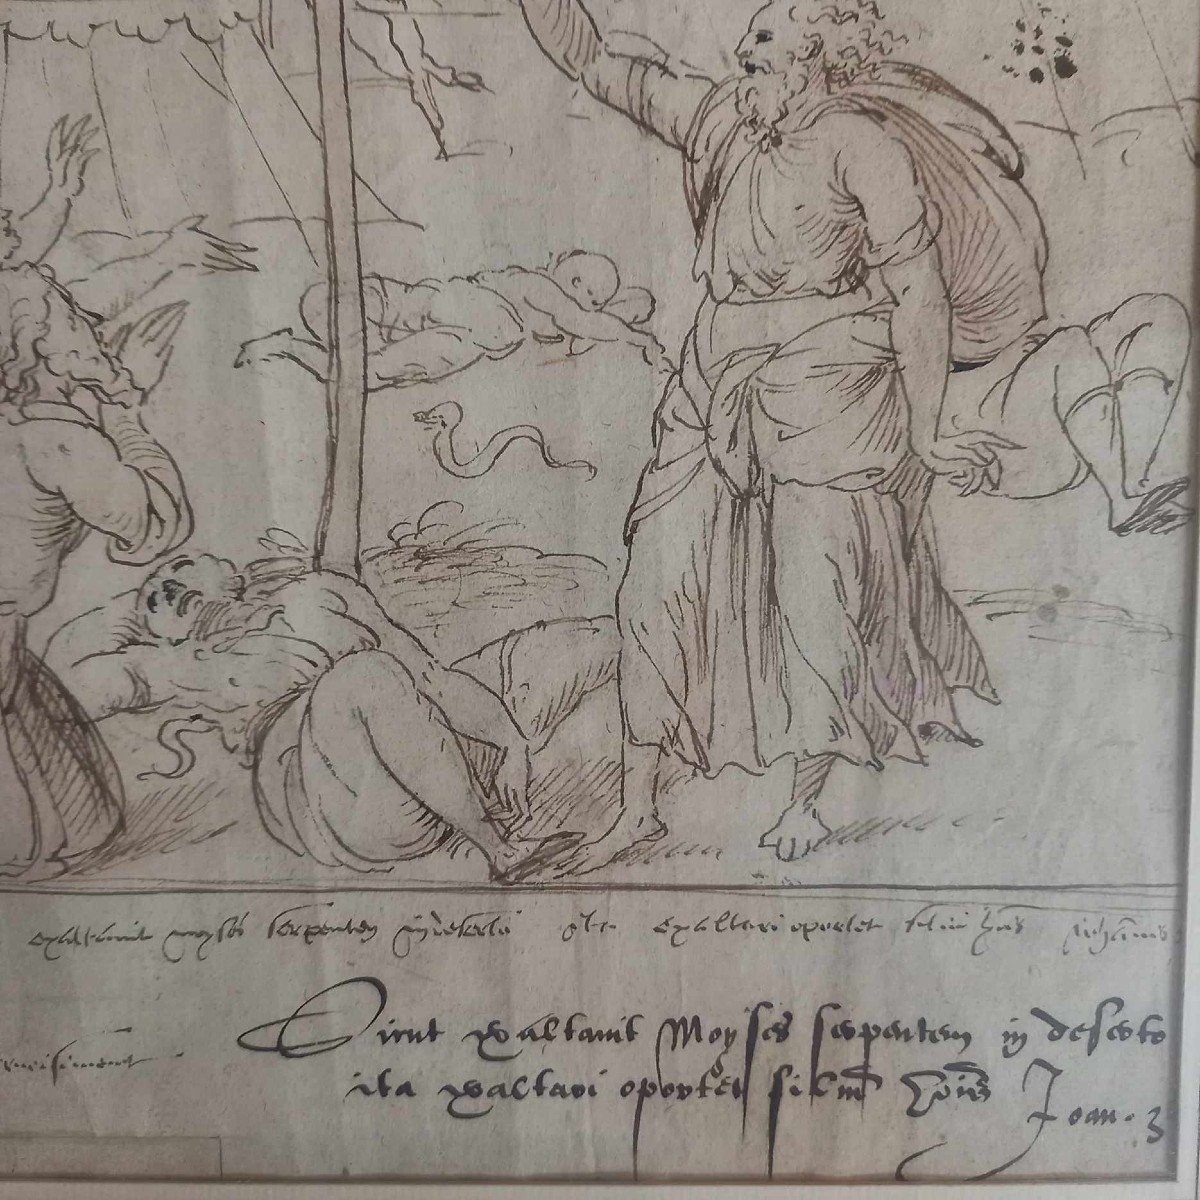 exaltavit moyses serpentem in deserto ita exaltari oportet filiu hōis Johannis
Sicut exaltavit Moyses serpentem in deserto
ita exaltari oportet filiū hōis Joan. 3